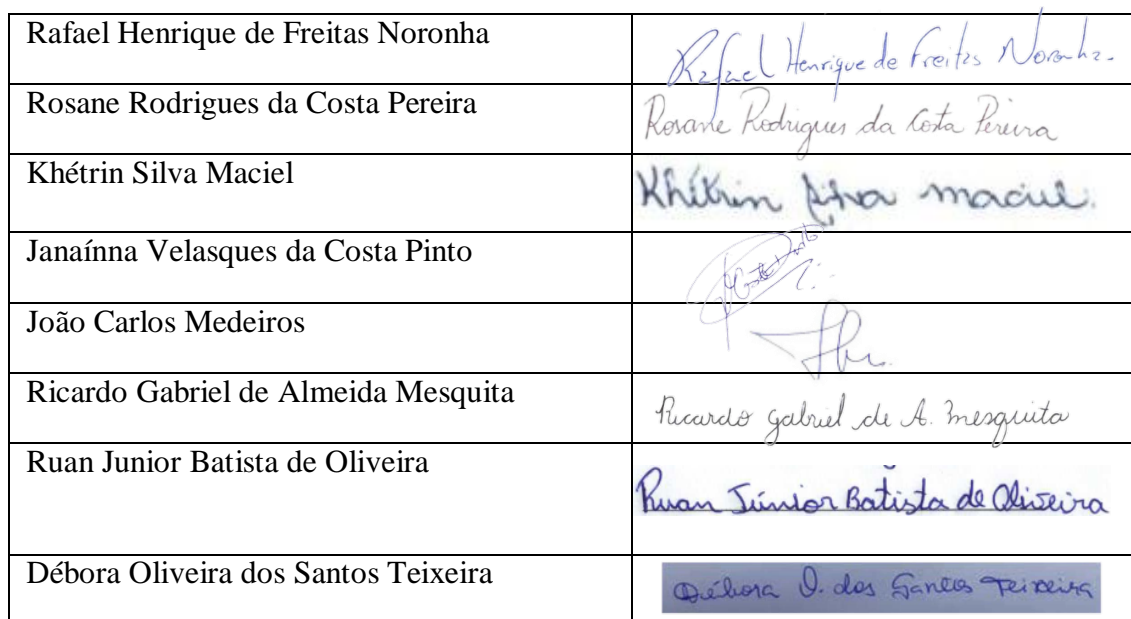 Rafael Henrique de Freitas Noronha
Rafael Henrique de Freitas Noronha.
Rosane Rodrigues da Costa Pereira
Rosane Rodrigues da Costa Pereira
Khétrin Silva Maciel
Khétrin Silva maciel.
Janaínna Velasques da Costa Pinto
João Carlos Medeiros
Ricardo Gabriel de Almeida Mesquita
Ricardo gabriel de A. mesquita
Ruan Junior Batista de Oliveira
Ruan Júnior Batista de Oliveira
Débora Oliveira dos Santos Teixeira
Débora O. dos Santos Teixeira